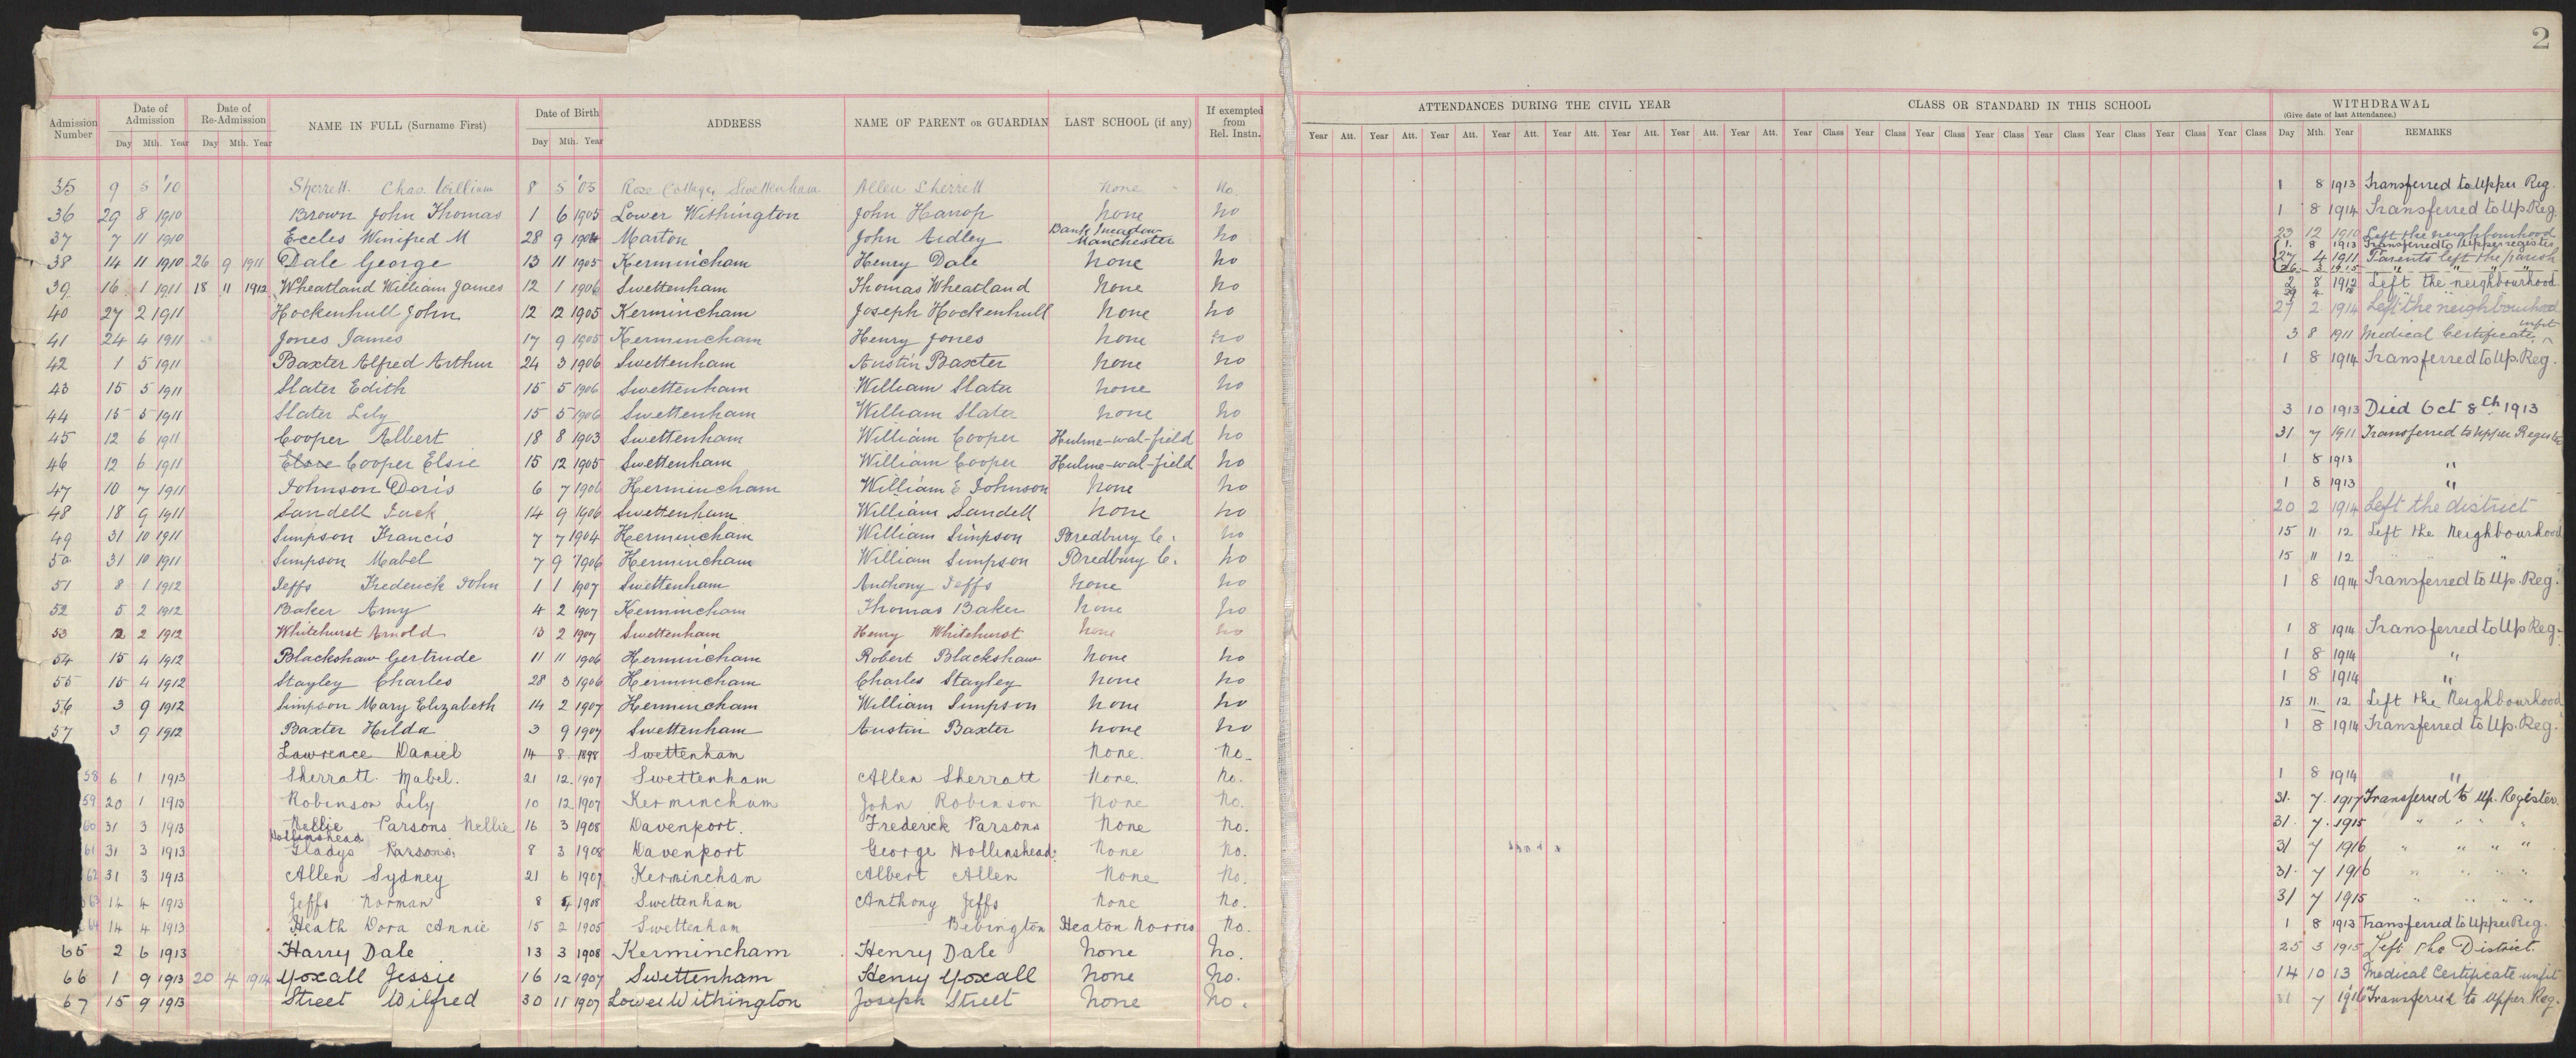 2
Admission Number | Date of Admission Day Mth. Year | Date of Re-Admission Day Mth. Year | NAME IN FULL (Surname First) | Date of Birth Day Mth. Year | ADDRESS | NAME OF PARENT OR GUARDIAN | LAST SCHOOL (if any) | If exempted from Rel. Instn. | ATTENDANCES DURING THE CIVIL YEAR | CLASS OR STANDARD IN THIS SCHOOL | WITHDRAWAL (Give date of last Attendance.) Day Mth. Year REMARKS
Year Att. Year Att. Year Att. Year Att. Year Att. Year Att. Year Att. Year Att. Year Class Year Class Year Class Year Class Year Class Year Class Year Class Year Class
35 9 5 '10 Sherrett. Chas. William 8 5 '05 Rose Cottages Swettenham Allen Sherrett None No. 1 8 1913 Transferred to Upper Reg.
36 29 8 1910 Brown John Thomas 1 6 1905 Lower Withington John Harrop None No 1 8 1914 Transferred to Up Reg.
37 7 11 1910 Eccles Winifred M 28 9 1904 Marton John Ardley Bank Meadow Manchester No 23 12 1910 Left the neighbourhood
38 14 11 1910 26 9 1911 Dale George 13 11 1905 Kermincham Henry Dale None No 1. 8 1913 Transferred to Upper register
27 4 1911 Parents left the parish
26 3 1915 " " " "
39 16 1 1911 18 11 1912 Wheatland William James 12 1 1906 Swettenham Thomas Wheatland None No 2 8 1912 Left the neighbourhood
40 27 2 1911 Hockenhull John 12 12 1905 Kermincham Joseph Hockenhull None No 27 2 1914 Left the neighbourhood
41 24 4 1911 Jones James 17 9 1905 Kermincham Henry Jones None No 3 8 1911 Medical Certificate, unfit
42 1 5 1911 Baxter Alfred Arthur 24 3 1906 Swettenham Austin Baxter None No 1 8 1914 Transferred to Up. Reg.
43 15 5 1911 Slater Edith 15 5 1906 Swettenham William Slater None No
44 15 5 1911 Slater Lily 15 5 1906 Swettenham William Slater None No 3 10 1913 Died Oct 8th 1913
45 12 6 1911 Cooper Albert 18 8 1903 Swettenham William Cooper Hulme-wal-field No 31 7 1911 Transferred to Upper Register
46 12 6 1911 Elsie Cooper Elsie 15 12 1905 Swettenham William Cooper Hulme-wal-field No 1 8 1913 "
47 10 7 1911 Johnson Doris 6 7 1906 Kermincham William E Johnson None No 1 8 1913 "
48 18 9 1911 Sandell Jack 14 9 1906 Swettenham William Sandell None No 20 2 1914 Left the district
49 31 10 1911 Simpson Francis 7 7 1904 Kermincham William Simpson Bredbury C. No 15 11 12 Left the Neighbourhood
50 31 10 1911 Simpson Mabel 7 9 1906 Kermincham William Simpson Bredbury C. No 15 11 12 " " "
51 8 1 1912 Jeffs Frederick John 1 1 1907 Swettenham Anthony Jeffs None No 1 8 1914 Transferred to Up. Reg.
52 5 2 1912 Baker Amy 4 2 1907 Kermincham Thomas Baker None No
53 12 2 1912 Whitehurst Arnold 13 2 1907 Swettenham Henry Whitehurst None No 1 8 1914 Transferred to Up Reg.
54 15 4 1912 Blackshaw Gertrude 11 11 1906 Kermincham Robert Blackshaw None No 1 8 1914 "
55 15 4 1912 Stayley Charles 28 3 1906 Kermincham Charles Stayley None No 1 8 1914 "
56 3 9 1912 Simpson Mary Elizabeth 14 2 1907 Kermincham William Simpson None No 15 11 12 Left the Neighbourhood
57 3 9 1912 Baxter Hilda 3 9 1907 Swettenham Austin Baxter None No 1 8 1914 Transferred to Up. Reg.
Lawrence Daniel 14 8 1898 Swettenham None. No.
58 6 1 1913 Sherratt Mabel. 21 12 1907 Swettenham Allen Sherratt None. No. 1 8 1914 "
59 20 1 1913 Robinson Lily 10 12 1907 Kermincham John Robinson None No. 31. 7. 1917 Transferred to Up. Register.
60 31 3 1913 Nellie Parsons Nellie 16 3 1908 Davenport. Frederick Parsons None No. 31. 7. 1915 " " " "
61 31 3 1913 Hollinshead Gladys Parsons. 8 3 1908 Davenport George Hollinshead None No. 31 7 1916 " " " "
62 31 3 1913 Allen Sydney 21 6 1907 Kermincham Albert Allen None No. 31. 7 1916 " " " "
63 14 4 1913 Jeffs Norman 8 4 1908 Swettenham Anthony Jeffs None No. 31 7 1915 " " " "
64 14 4 1913 Heath Dora Annie 15 2 1905 Swettenham Bebington Heaton Norris No. 1 8 1913 Transferred to Upper Reg.
65 2 6 1913 Harry Dale 13 3 1908 Kermincham Henry Dale None No. 25 3 1915 Left the District.
66 1 9 1913 20 4 1914 Yoxall Jessie 16 12 1907 Swettenham Henry Yoxall None No. 14 10 13 Medical Certificate unfit
67 15 9 1913 Street Wilfred 30 11 1907 Lower Withington Joseph Street None No. 31 7 1916 Transferred to Upper Reg.